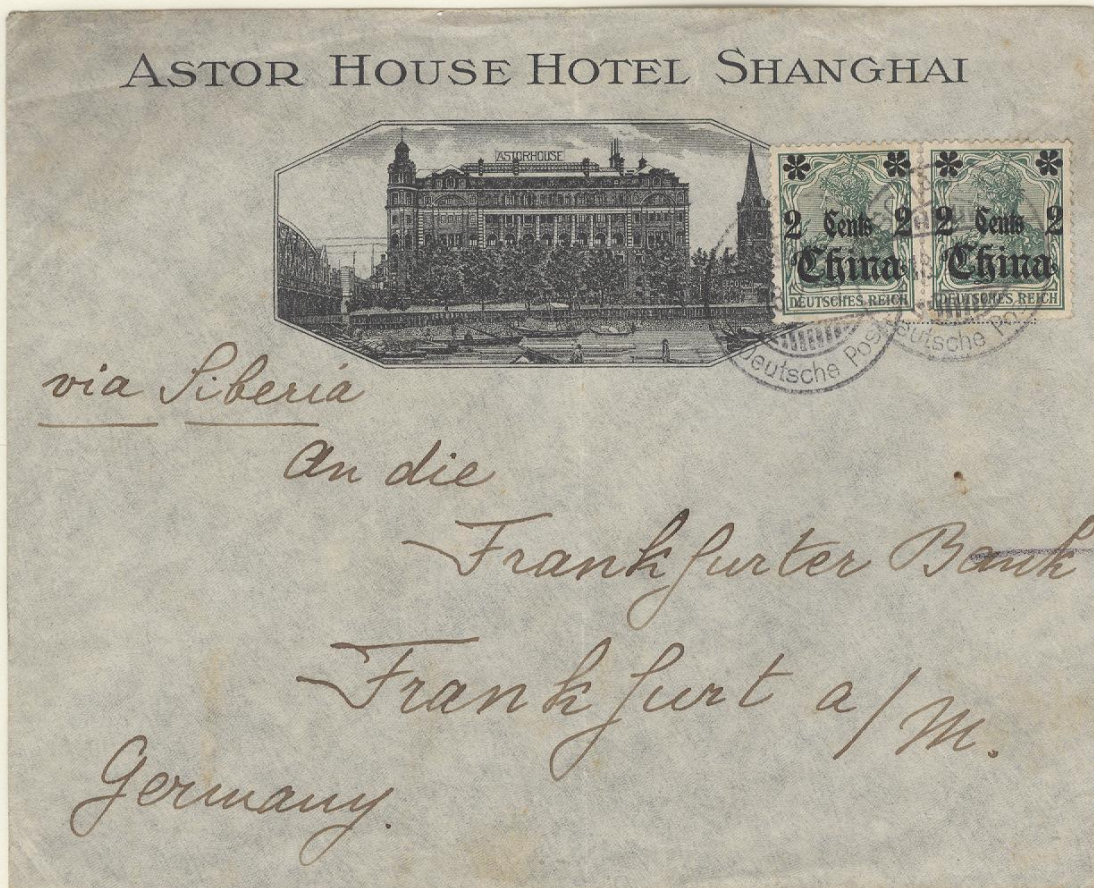 ASTOR HOUSE HOTEL SHANGHAI
ASTORHOUSE
2 Cents 2
China
DEUTSCHES REICH
2 Cents 2
China
DEUTSCHES REICH
Deutsche Post
Deutsche Po
via Siberia
An die
Frankfurter Bank
Frankfurt a/M.
Germany.